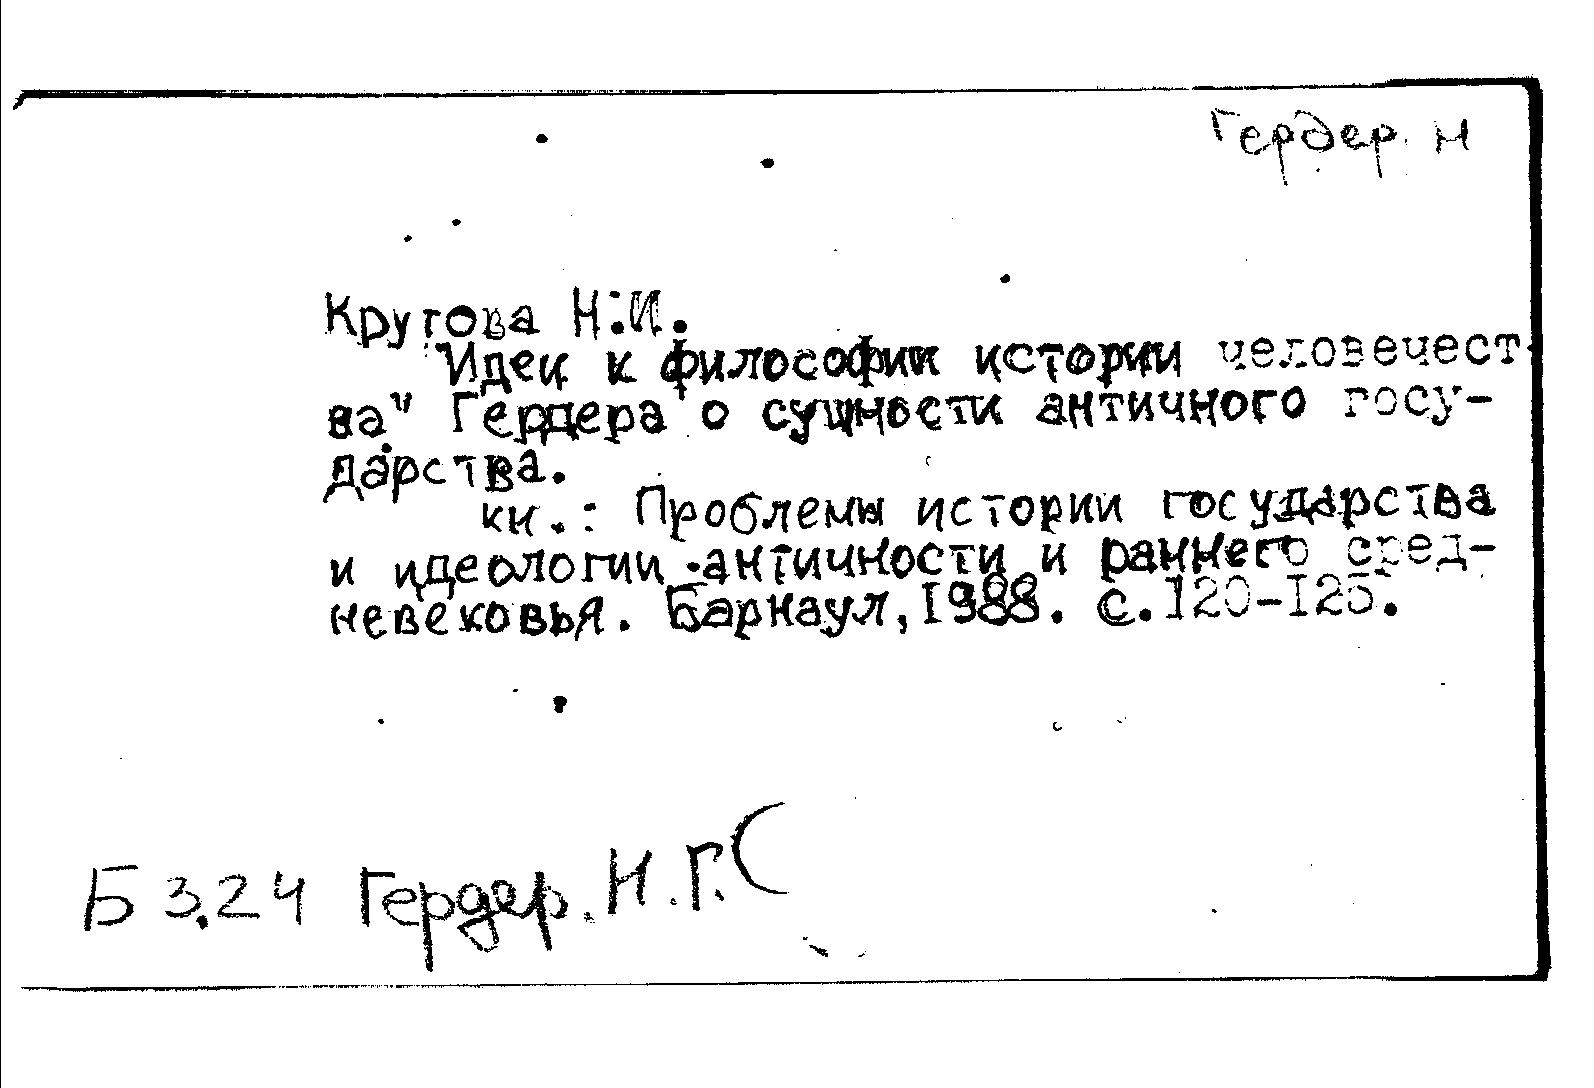 Гердер. И
Кругова Н.И.
"Идеи к философии истории человечест-
ва" Гердера о сущности античного госу-
дарства.
кн.: Проблемы истории государства
и идеологии античности и раннего сред-
невековья. Барнаул, 1988. с.120-125.
Б 3.24 Гердер. И. Г. (